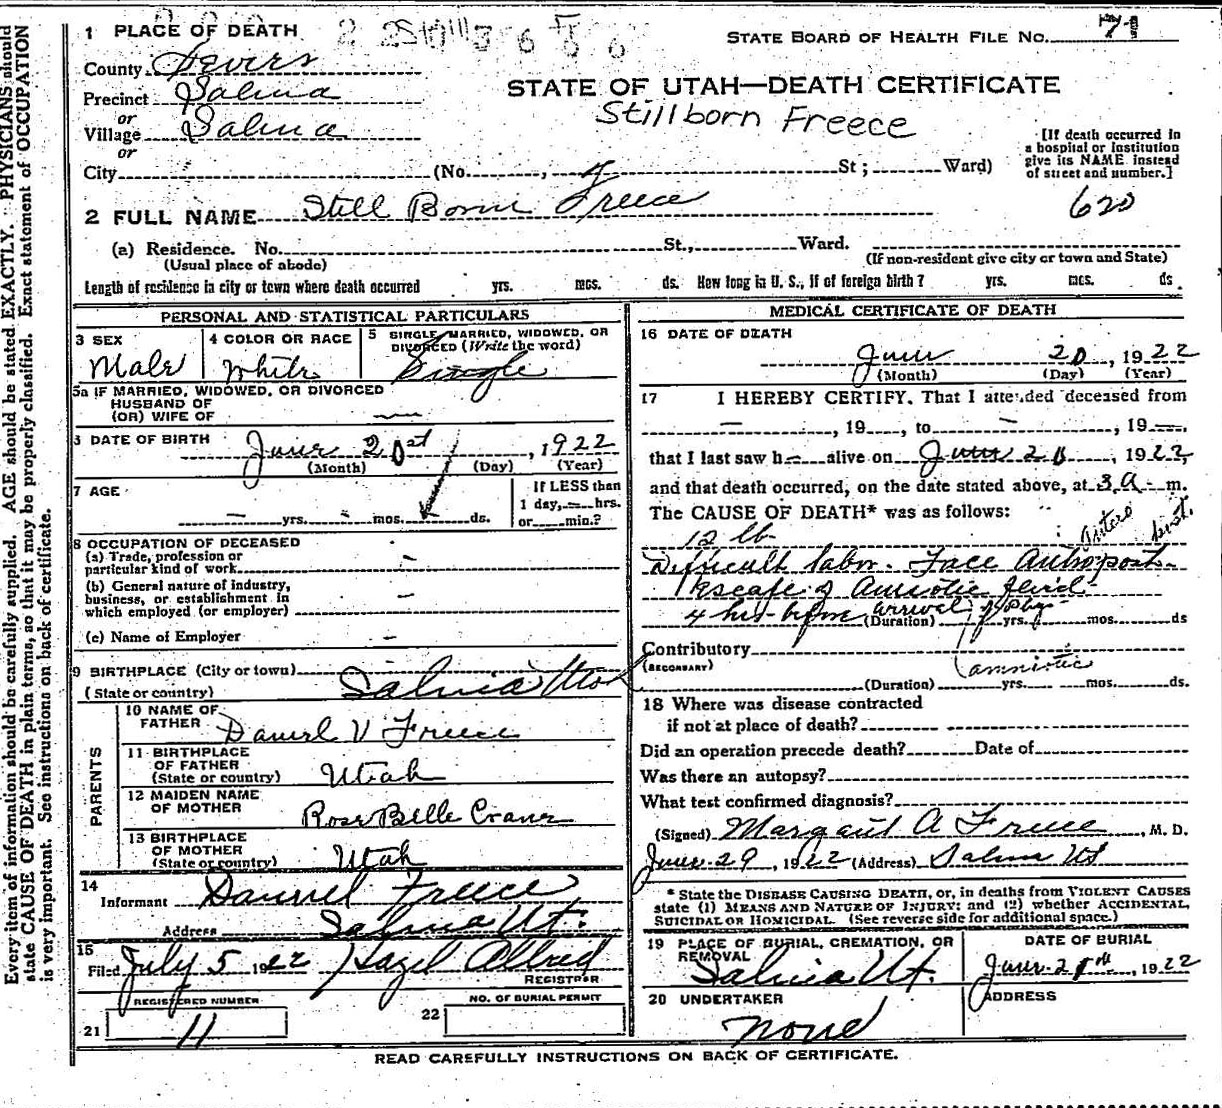 Every item of information should be carefully supplied. AGE should be stated EXACTLY. PHYSICIANS should
state CAUSE OF DEATH in plain terms, so that it may be properly classified. Exact statement of OCCUPATION
is very important. See instructions on back of certificate.
1 PLACE OF DEATH
STATE BOARD OF HEALTH FILE NO. 71
County Sevier
STATE OF UTAH—DEATH CERTIFICATE
Precinct Salina
Stillborn Freece
or
Village Salina
or
[If death occurred in
a hospital or institution
give its NAME instead
of street and number.]
City (No. , St; Ward)
2 FULL NAME Still Born Freece
620
(a) Residence. No. St., Ward.
(Usual place of abode) (If non-resident give city or town and State)
Length of residence in city or town where death occurred yrs. mos. ds. How long in U. S., if of foreign birth? yrs. mos. ds.
PERSONAL AND STATISTICAL PARTICULARS
3 SEX
Male
4 COLOR OR RACE
White
5 SINGLE, MARRIED, WIDOWED, OR
DIVORCED (Write the word)
Single
5a IF MARRIED, WIDOWED, OR DIVORCED
HUSBAND OF
(OR) WIFE OF —
6 DATE OF BIRTH June 20st, 1922
(Month) (Day) (Year)
7 AGE
— yrs. - mos. ds.
If LESS than
1 day, — hrs.
or min.?
8 OCCUPATION OF DECEASED
(a) Trade, profession or
particular kind of work -
(b) General nature of industry,
business, or establishment in
which employed (or employer) -
(c) Name of Employer -
9 BIRTHPLACE (City or town)
(State or country) Salina Utah
PARENTS
10 NAME OF
FATHER Daniel V Freece
11 BIRTHPLACE
OF FATHER
(State or country) Utah
12 MAIDEN NAME
OF MOTHER Rose Belle Crane
13 BIRTHPLACE
OF MOTHER
(State or country) Utah
14
Informant Daniel Freece
Address Salina Ut.
15
Filed July 5 1922 Hazel Allred
REGISTRAR
REGISTERED NUMBER
21 11
NO. OF BURIAL PERMIT
22
MEDICAL CERTIFICATE OF DEATH
16 DATE OF DEATH
June 20, 1922
(Month) (Day) (Year)
17 I HEREBY CERTIFY, That I attended deceased from
— , 19 , to — , 19 —,
that I last saw h— alive on June 20, 1922,
and that death occurred, on the date stated above, at 3 a m.
The CAUSE OF DEATH* was as follows:
12 lb
Difficult labor. Face
Escape of Amniotic fluid
4 hrs before arrival of Phy.
(Duration) yrs. mos. ds
Contributory
(SECONDARY) (amniotic
(Duration) yrs. mos. ds.
18 Where was disease contracted
if not at place of death?
Did an operation precede death? Date of
Was there an autopsy?
What test confirmed diagnosis?
(Signed) Margaret A Freece, M. D.
June 29, 1922 (Address) Salina Ut
* State the DISEASE CAUSING DEATH, or, in deaths from VIOLENT CAUSES
state (1) MEANS AND NATURE OF INJURY; and (2) whether ACCIDENTAL,
SUICIDAL OR HOMICIDAL. (See reverse side for additional space.)
19 PLACE OF BURIAL, CREMATION, OR
REMOVAL
Salina Ut.
DATE OF BURIAL
June, 1922
20 UNDERTAKER
none
ADDRESS
READ CAREFULLY INSTRUCTIONS ON BACK OF CERTIFICATE.